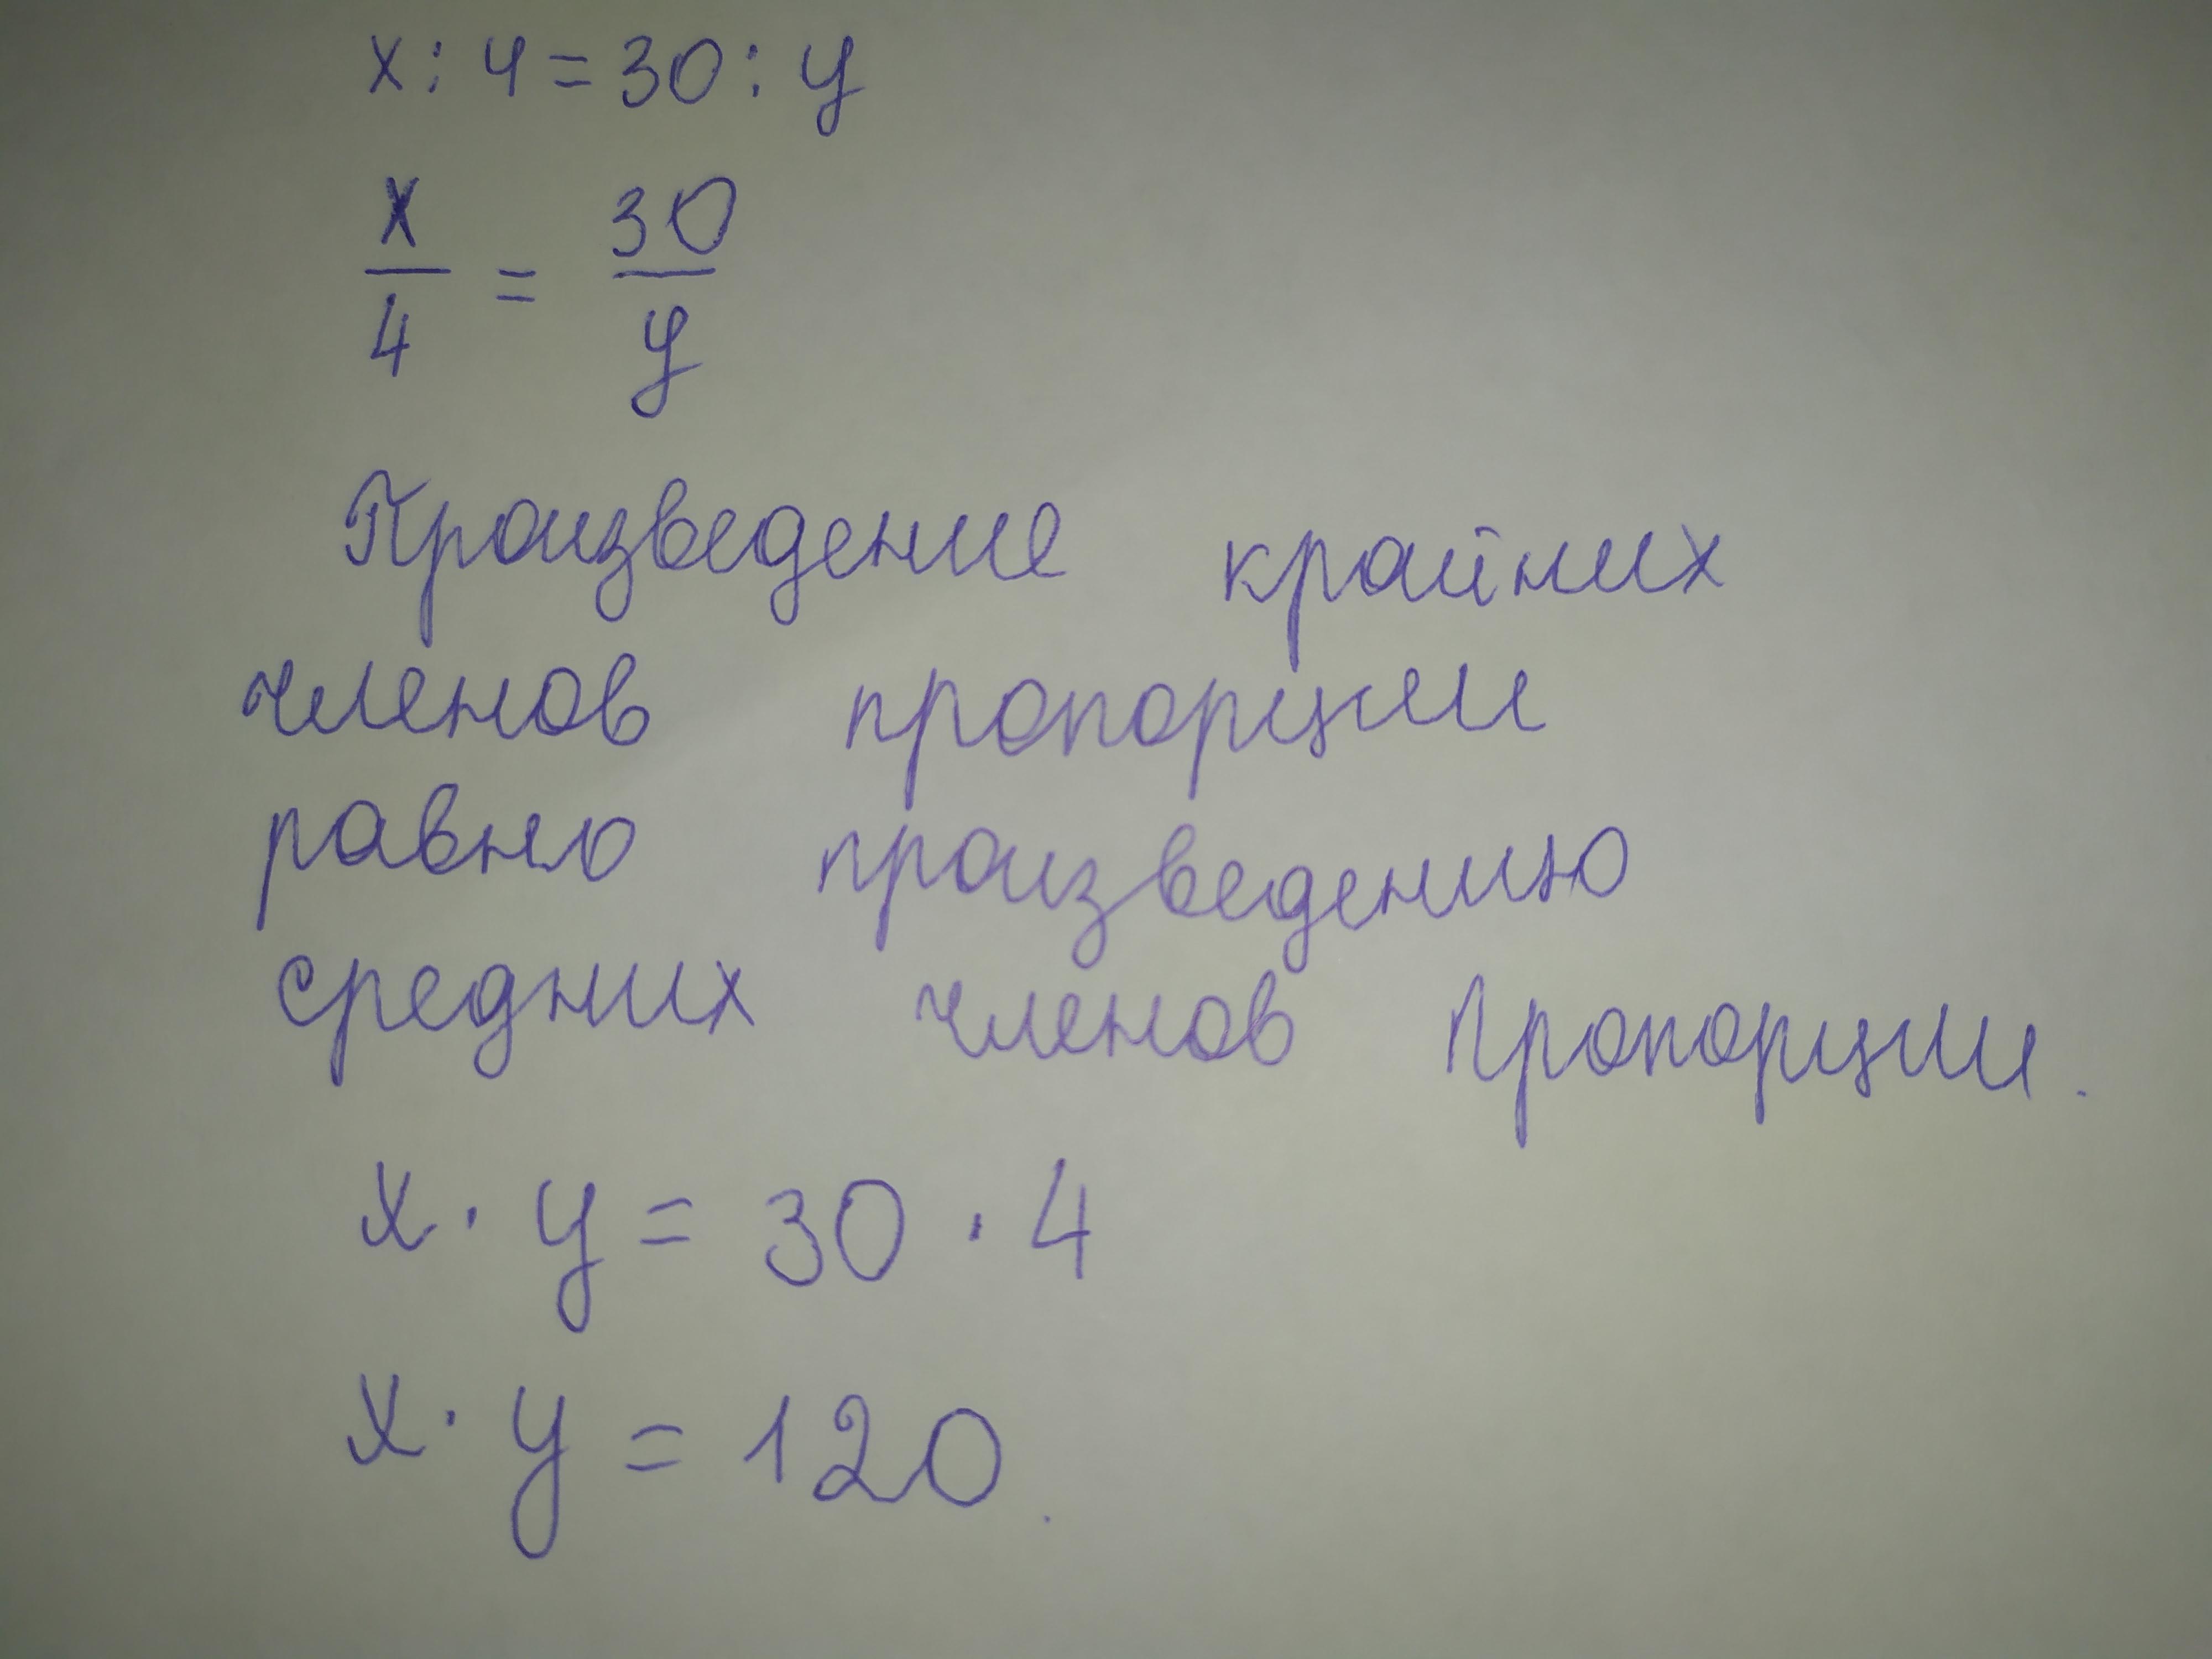 x : 4 = 30 : y
x/4 = 30/y
Произведение крайних
членов пропорции
равно произведению
средних членов пропорции.
x · y = 30 · 4
x · y = 120.